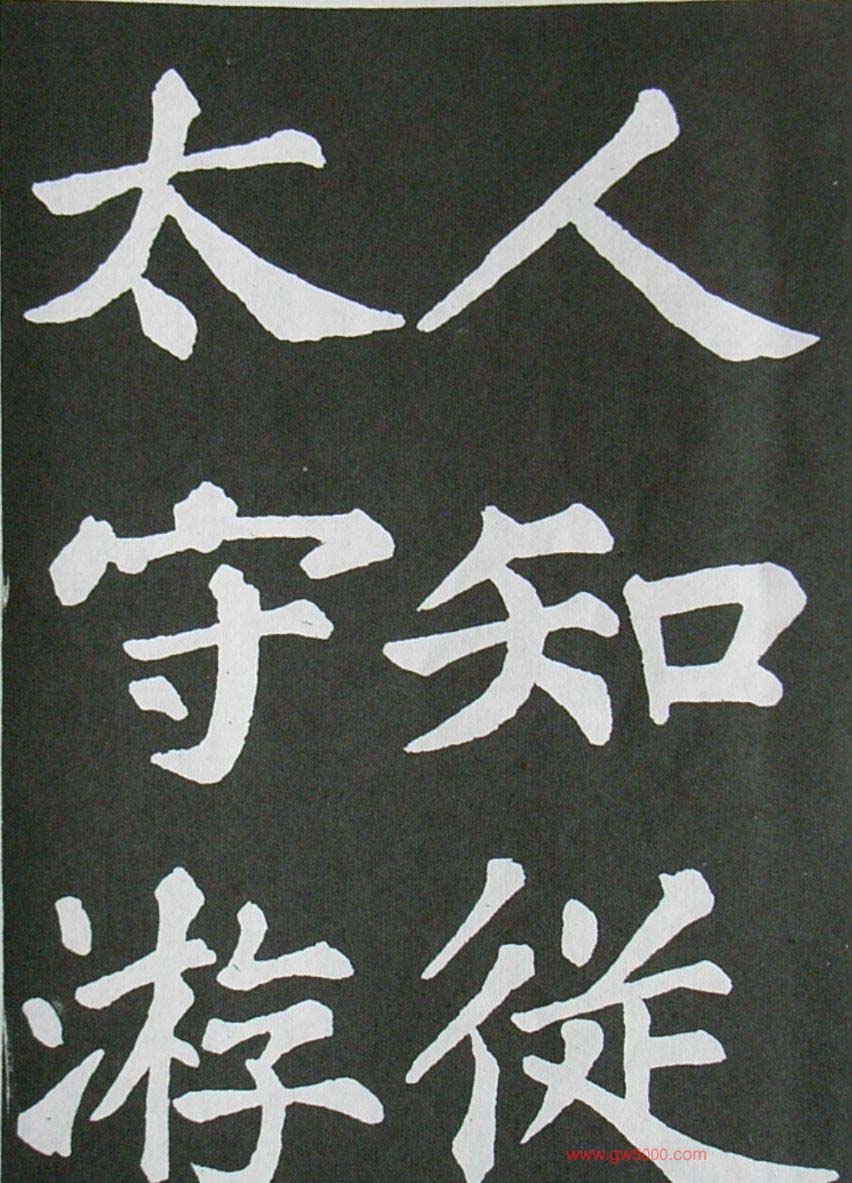 人知從
太守游
www.gw5000.com